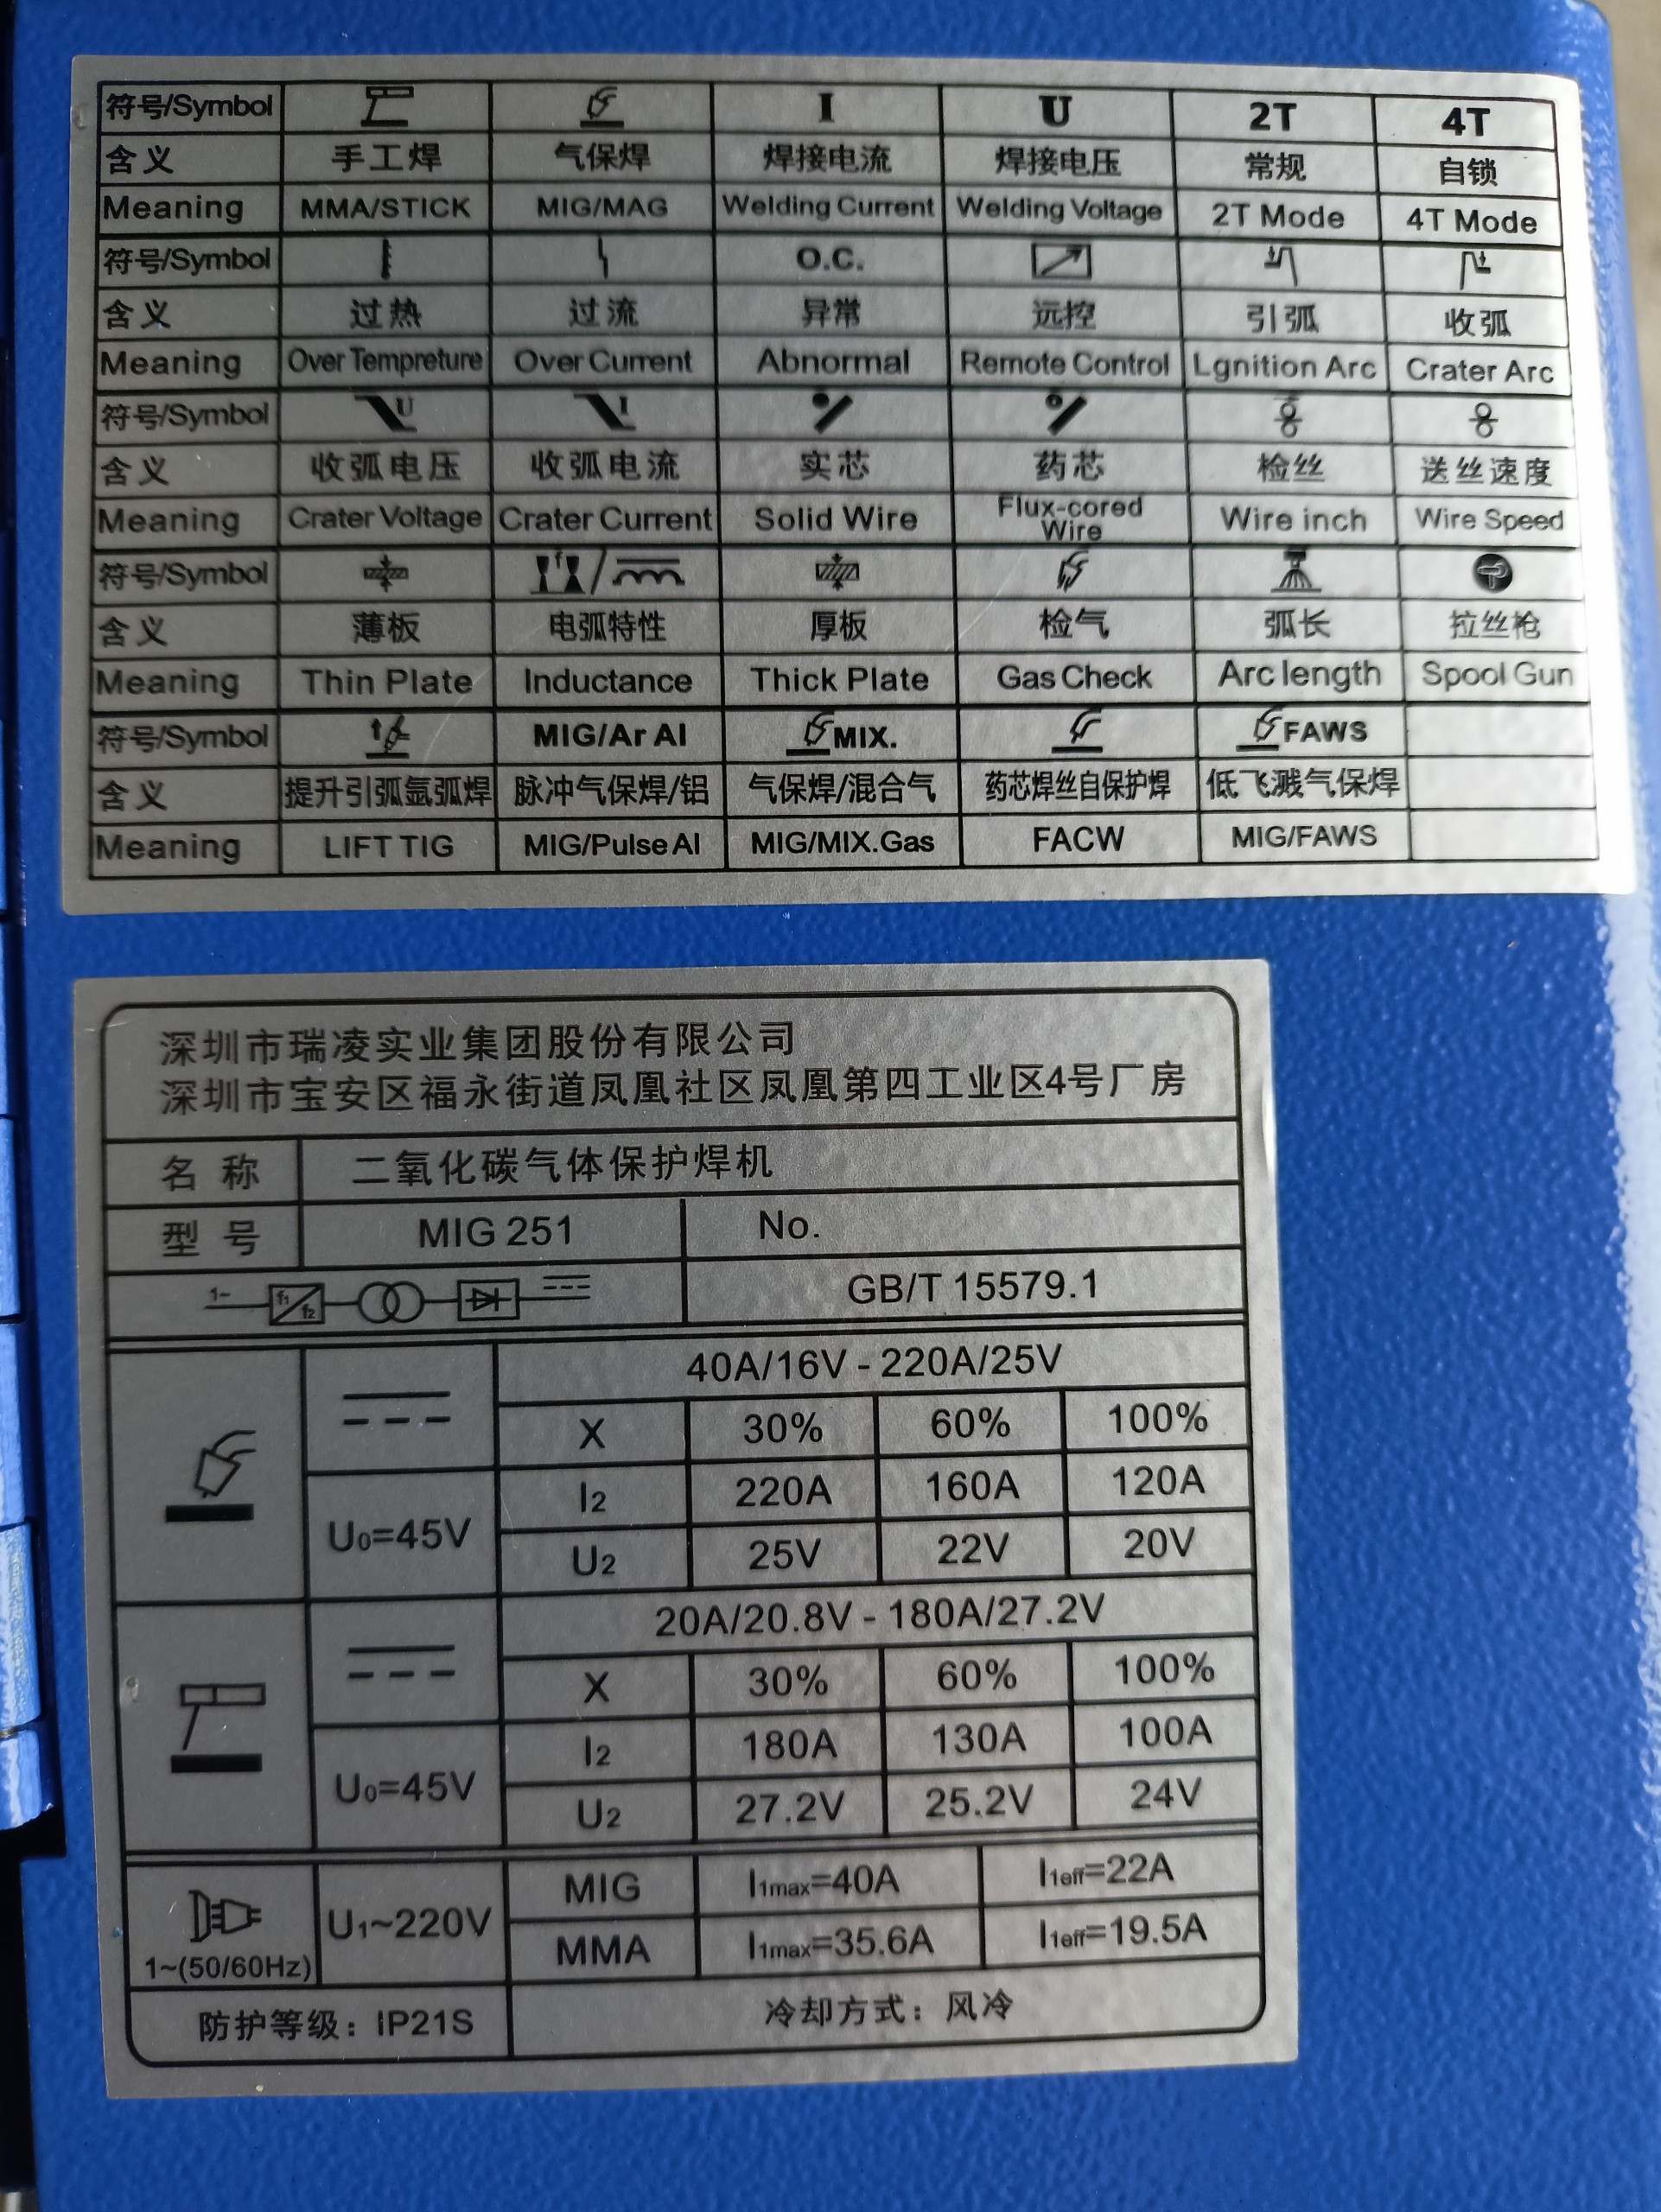 符号/Symbol I U 2T 4T
含义 手工焊 气保焊 焊接电流 焊接电压 常规 自锁
Meaning MMA/STICK MIG/MAG Welding Current Welding Voltage 2T Mode 4T Mode
符号/Symbol O.C.
含义 过热 过流 异常 远控 引弧 收弧
Meaning Over Tempreture Over Current Abnormal Remote Control Lgnition Arc Crater Arc
符号/Symbol U I
含义 收弧电压 收弧电流 实芯 药芯 检丝 送丝速度
Meaning Crater Voltage Crater Current Solid Wire Flux-cored Wire Wire inch Wire Speed
符号/Symbol f /
含义 薄板 电弧特性 厚板 检气 弧长 拉丝枪
Meaning Thin Plate Inductance Thick Plate Gas Check Arc length Spool Gun
符号/Symbol MIG/Ar Al MIX. FAWS
含义 提升引弧氩弧焊 脉冲气保焊/铝 气保焊/混合气 药芯焊丝自保护焊 低飞溅气保焊
Meaning LIFT TIG MIG/Pulse Al MIG/MIX.Gas FACW MIG/FAWS
深圳市瑞凌实业集团股份有限公司
深圳市宝安区福永街道凤凰社区凤凰第四工业区4号厂房
名称 二氧化碳气体保护焊机
型号 MIG 251 No.
1~ f1 f2 GB/T 15579.1
40A/16V - 220A/25V
X 30% 60% 100%
I2 220A 160A 120A
U0=45V
U2 25V 22V 20V
20A/20.8V - 180A/27.2V
X 30% 60% 100%
I2 180A 130A 100A
U0=45V
U2 27.2V 25.2V 24V
MIG I1max=40A I1eff=22A
U1~220V
MMA I1max=35.6A I1eff=19.5A
1~(50/60Hz)
防护等级：IP21S 冷却方式：风冷